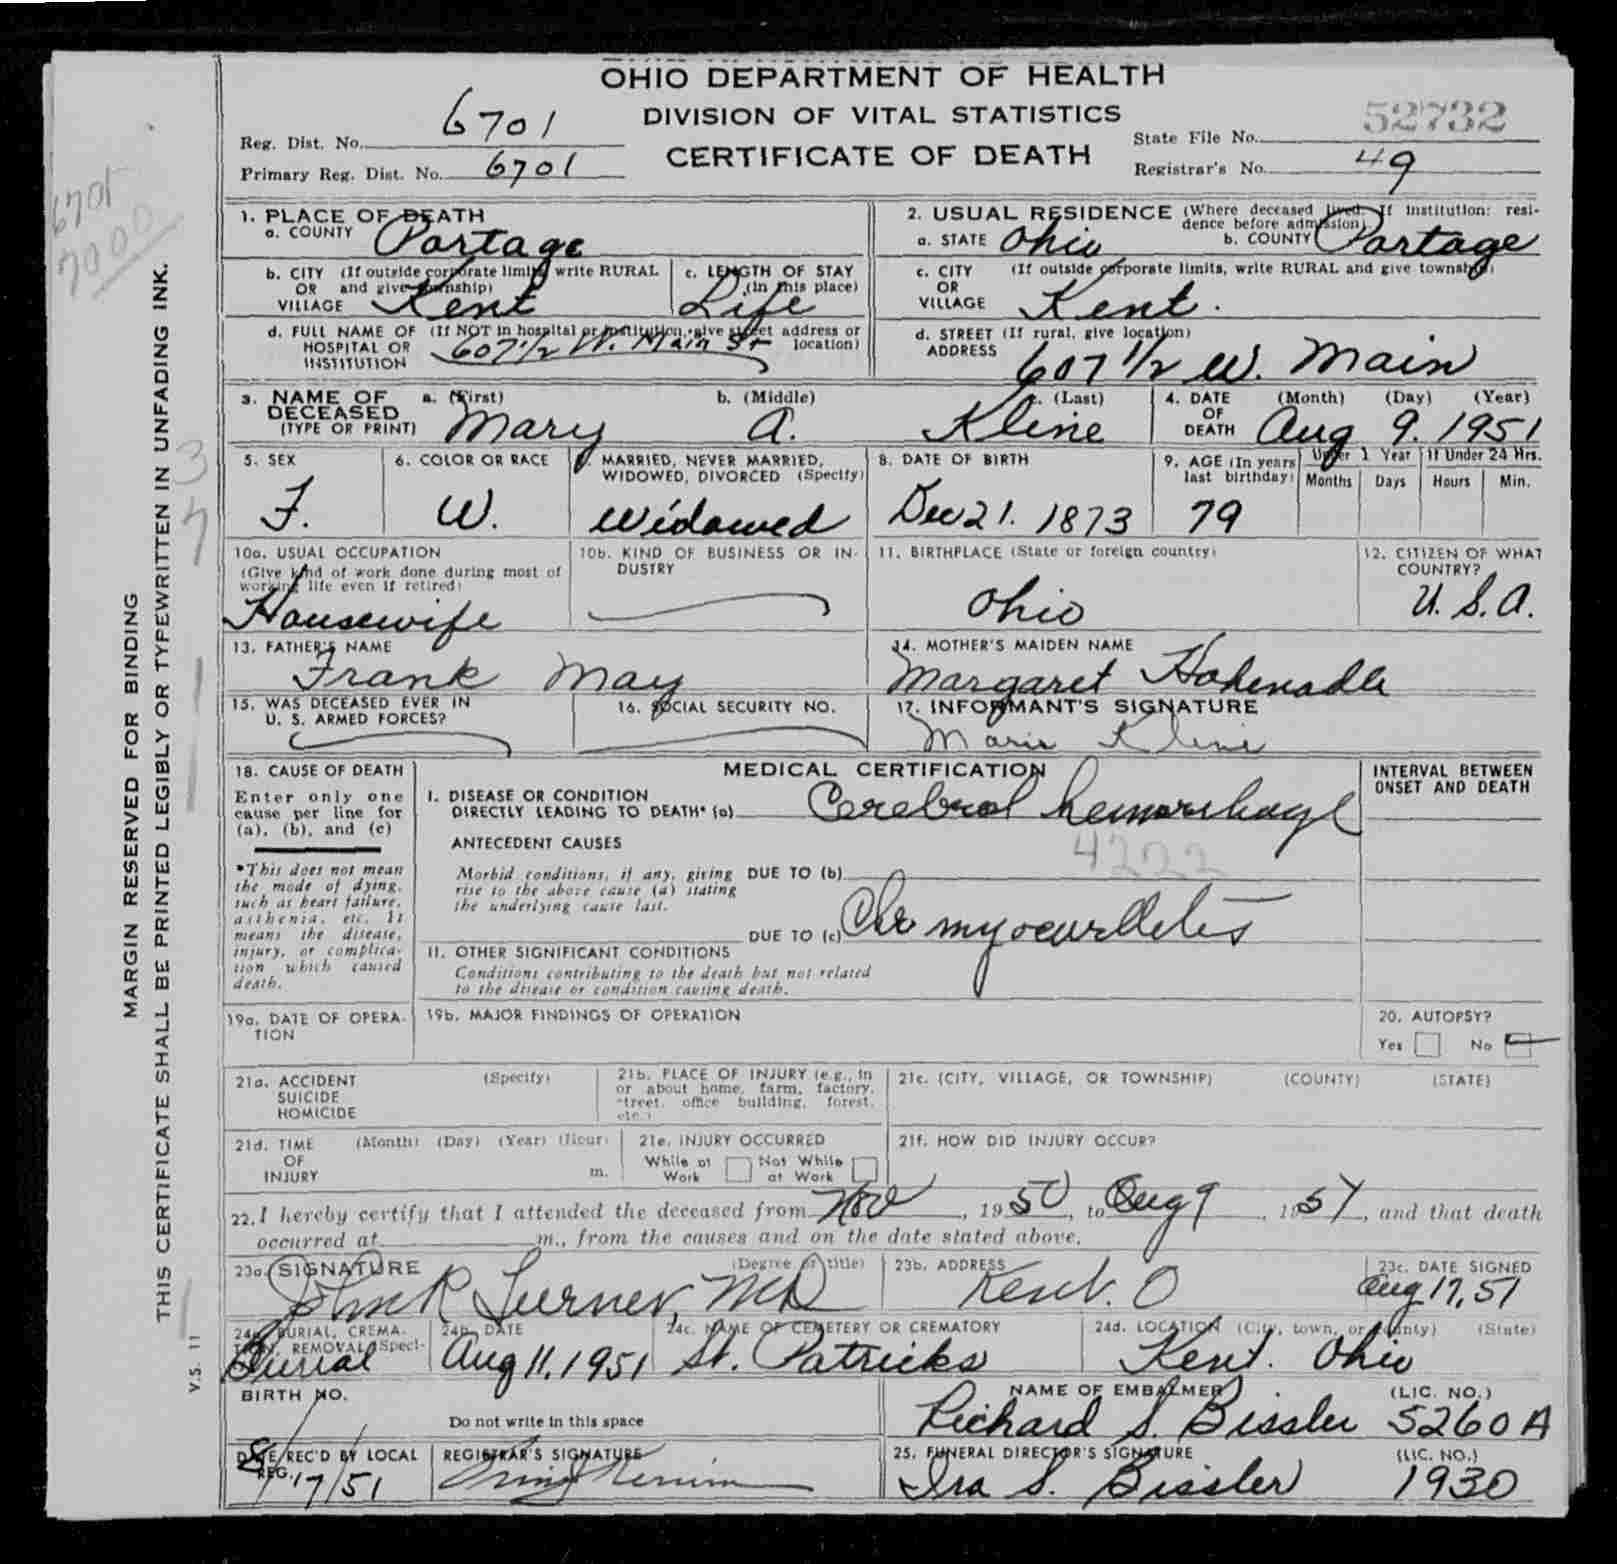 OHIO DEPARTMENT OF HEALTH
DIVISION OF VITAL STATISTICS
CERTIFICATE OF DEATH
Reg. Dist. No. 6701
Primary Reg. Dist. No. 6701
State File No. 52732
Registrar's No. 49
6701
7000
MARGIN RESERVED FOR BINDING
THIS CERTIFICATE SHALL BE PRINTED LEGIBLY OR TYPEWRITTEN IN UNFADING INK.
V.S. 11
1. PLACE OF DEATH
a. COUNTY Portage
2. USUAL RESIDENCE (Where deceased lived. If institution: resi-
dence before admission)
a. STATE Ohio b. COUNTY Portage
b. CITY (If outside corporate limits, write RURAL
OR and give township)
VILLAGE Kent
c. LENGTH OF STAY
(in this place)
Life
c. CITY (If outside corporate limits, write RURAL and give township)
OR
VILLAGE Kent.
d. FULL NAME OF (If NOT in hospital or institution, give street address or
HOSPITAL OR location)
INSTITUTION 607 1/2 W. Main St
d. STREET (If rural, give location)
ADDRESS
607 1/2 W. Main
3. NAME OF DECEASED
(TYPE OR PRINT)
a. (First) b. (Middle) c. (Last)
Mary A. Kline
4. DATE OF DEATH (Month) (Day) (Year)
Aug 9. 1951
5. SEX
F.
6. COLOR OR RACE
W.
7. MARRIED, NEVER MARRIED,
WIDOWED, DIVORCED (Specify)
Widowed
8. DATE OF BIRTH
Dec 21. 1873
9. AGE (In years
last birthday)
79
Under 1 Year If Under 24 Hrs.
Months Days Hours Min.
10a. USUAL OCCUPATION
(Give kind of work done during most of
working life even if retired)
Housewife
10b. KIND OF BUSINESS OR IN-
DUSTRY
11. BIRTHPLACE (State or foreign country)
Ohio
12. CITIZEN OF WHAT
COUNTRY?
U. S. A.
13. FATHER'S NAME
Frank May
14. MOTHER'S MAIDEN NAME
Margaret
15. WAS DECEASED EVER IN
U. S. ARMED FORCES?
16. SOCIAL SECURITY NO.
17. INFORMANT'S SIGNATURE
Marie Kline
18. CAUSE OF DEATH
Enter only one
cause per line for
(a), (b), and (c)
*This does not mean
the mode of dying,
such as heart failure,
asthenia, etc. It
means the disease,
injury, or complica-
tion which caused
death.
MEDICAL CERTIFICATION
INTERVAL BETWEEN
ONSET AND DEATH
I. DISEASE OR CONDITION
DIRECTLY LEADING TO DEATH* (a) Cerebral hemorrhage
ANTECEDENT CAUSES
4222
Morbid conditions, if any, giving
rise to the above cause (a) stating
the underlying cause last.
DUE TO (b)
DUE TO (c) Chr myocarditis
II. OTHER SIGNIFICANT CONDITIONS
Conditions contributing to the death but not related
to the disease or condition causing death.
19a. DATE OF OPERA-
TION
19b. MAJOR FINDINGS OF OPERATION
20. AUTOPSY?
Yes No
21a. ACCIDENT (Specify)
SUICIDE
HOMICIDE
21b. PLACE OF INJURY (e.g., in
or about home, farm, factory,
street, office building, forest,
etc.)
21c. (CITY, VILLAGE, OR TOWNSHIP) (COUNTY) (STATE)
21d. TIME (Month) (Day) (Year) (Hour)
OF
INJURY m.
21e. INJURY OCCURRED
While at Not While
Work at Work
21f. HOW DID INJURY OCCUR?
22. I hereby certify that I attended the deceased from Nov, 1950, to Aug 9, 1951, and that death
occurred at m., from the causes and on the date stated above.
23a. SIGNATURE (Degree or title)
John R Turner, MD
23b. ADDRESS
Kent. O
23c. DATE SIGNED
Aug 17, 51
24a. BURIAL, CREMA-
TION, REMOVAL (Speci-
Burial
24b. DATE
Aug 11. 1951
24c. NAME OF CEMETERY OR CREMATORY
St. Patricks
24d. LOCATION (City, town, or county) (State)
Kent. Ohio
BIRTH NO.
Do not write in this space
NAME OF EMBALMER (LIC. NO.)
Richard S. Bissler 5260 A
DATE REC'D BY LOCAL
REG.
8/17/51
REGISTRAR'S SIGNATURE
25. FUNERAL DIRECTOR'S SIGNATURE (LIC. NO.)
Ira S. Bissler 1930